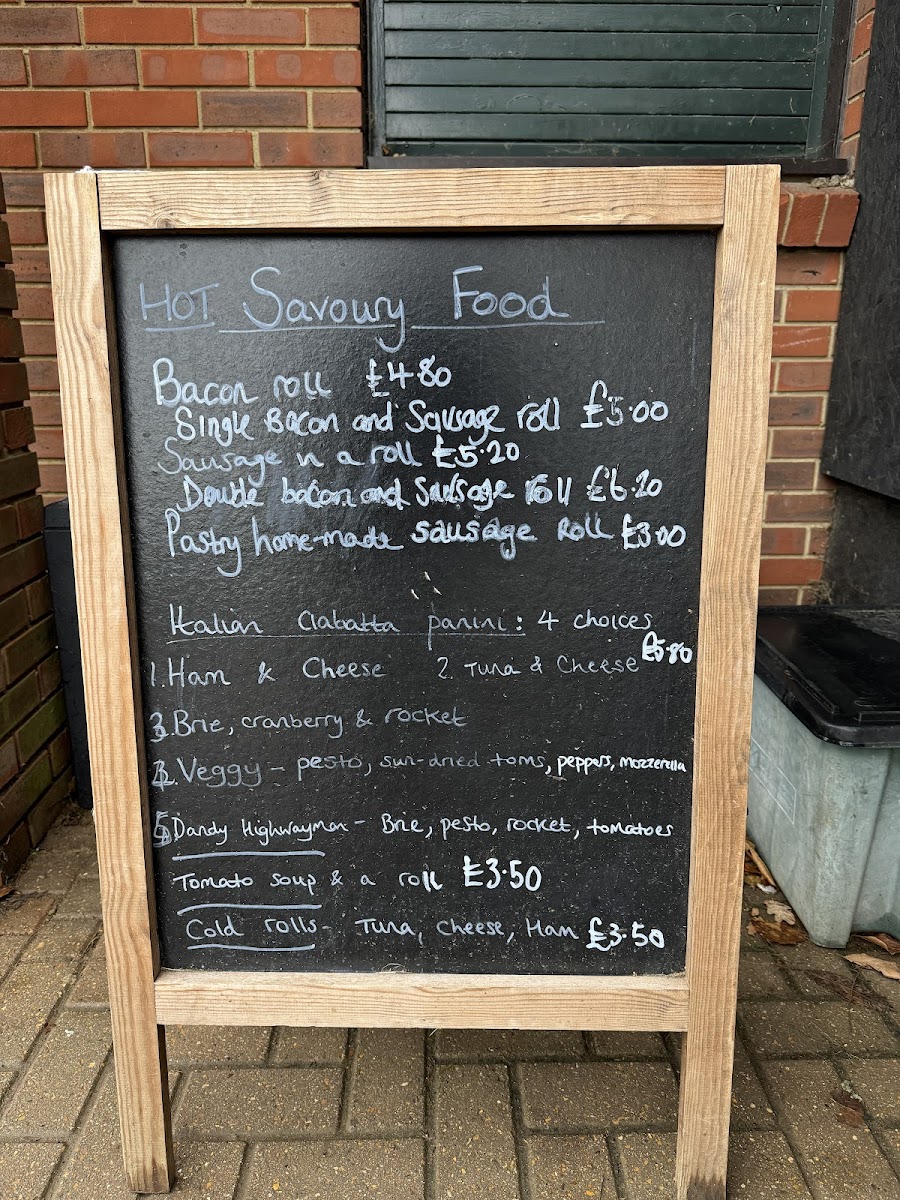 HOT Savoury Food
Bacon roll £4.80
Single Bacon and Sausage roll £5.00
Sausage in a roll £5.20
Double bacon and Sausage roll £6.20
Pastry home-made sausage roll £3.00
Italian Ciabatta panini: 4 choices
£5.80
1. Ham & Cheese 2. Tuna & Cheese
3. Brie, cranberry & rocket
4. Veggy - pesto, sun-dried toms, peppers, mozzerella
5 Dandy Highwayman - Brie, pesto, rocket, tomatoes
Tomato soup & a roll £3.50
Cold rolls - Tuna, Cheese, Ham £3.50